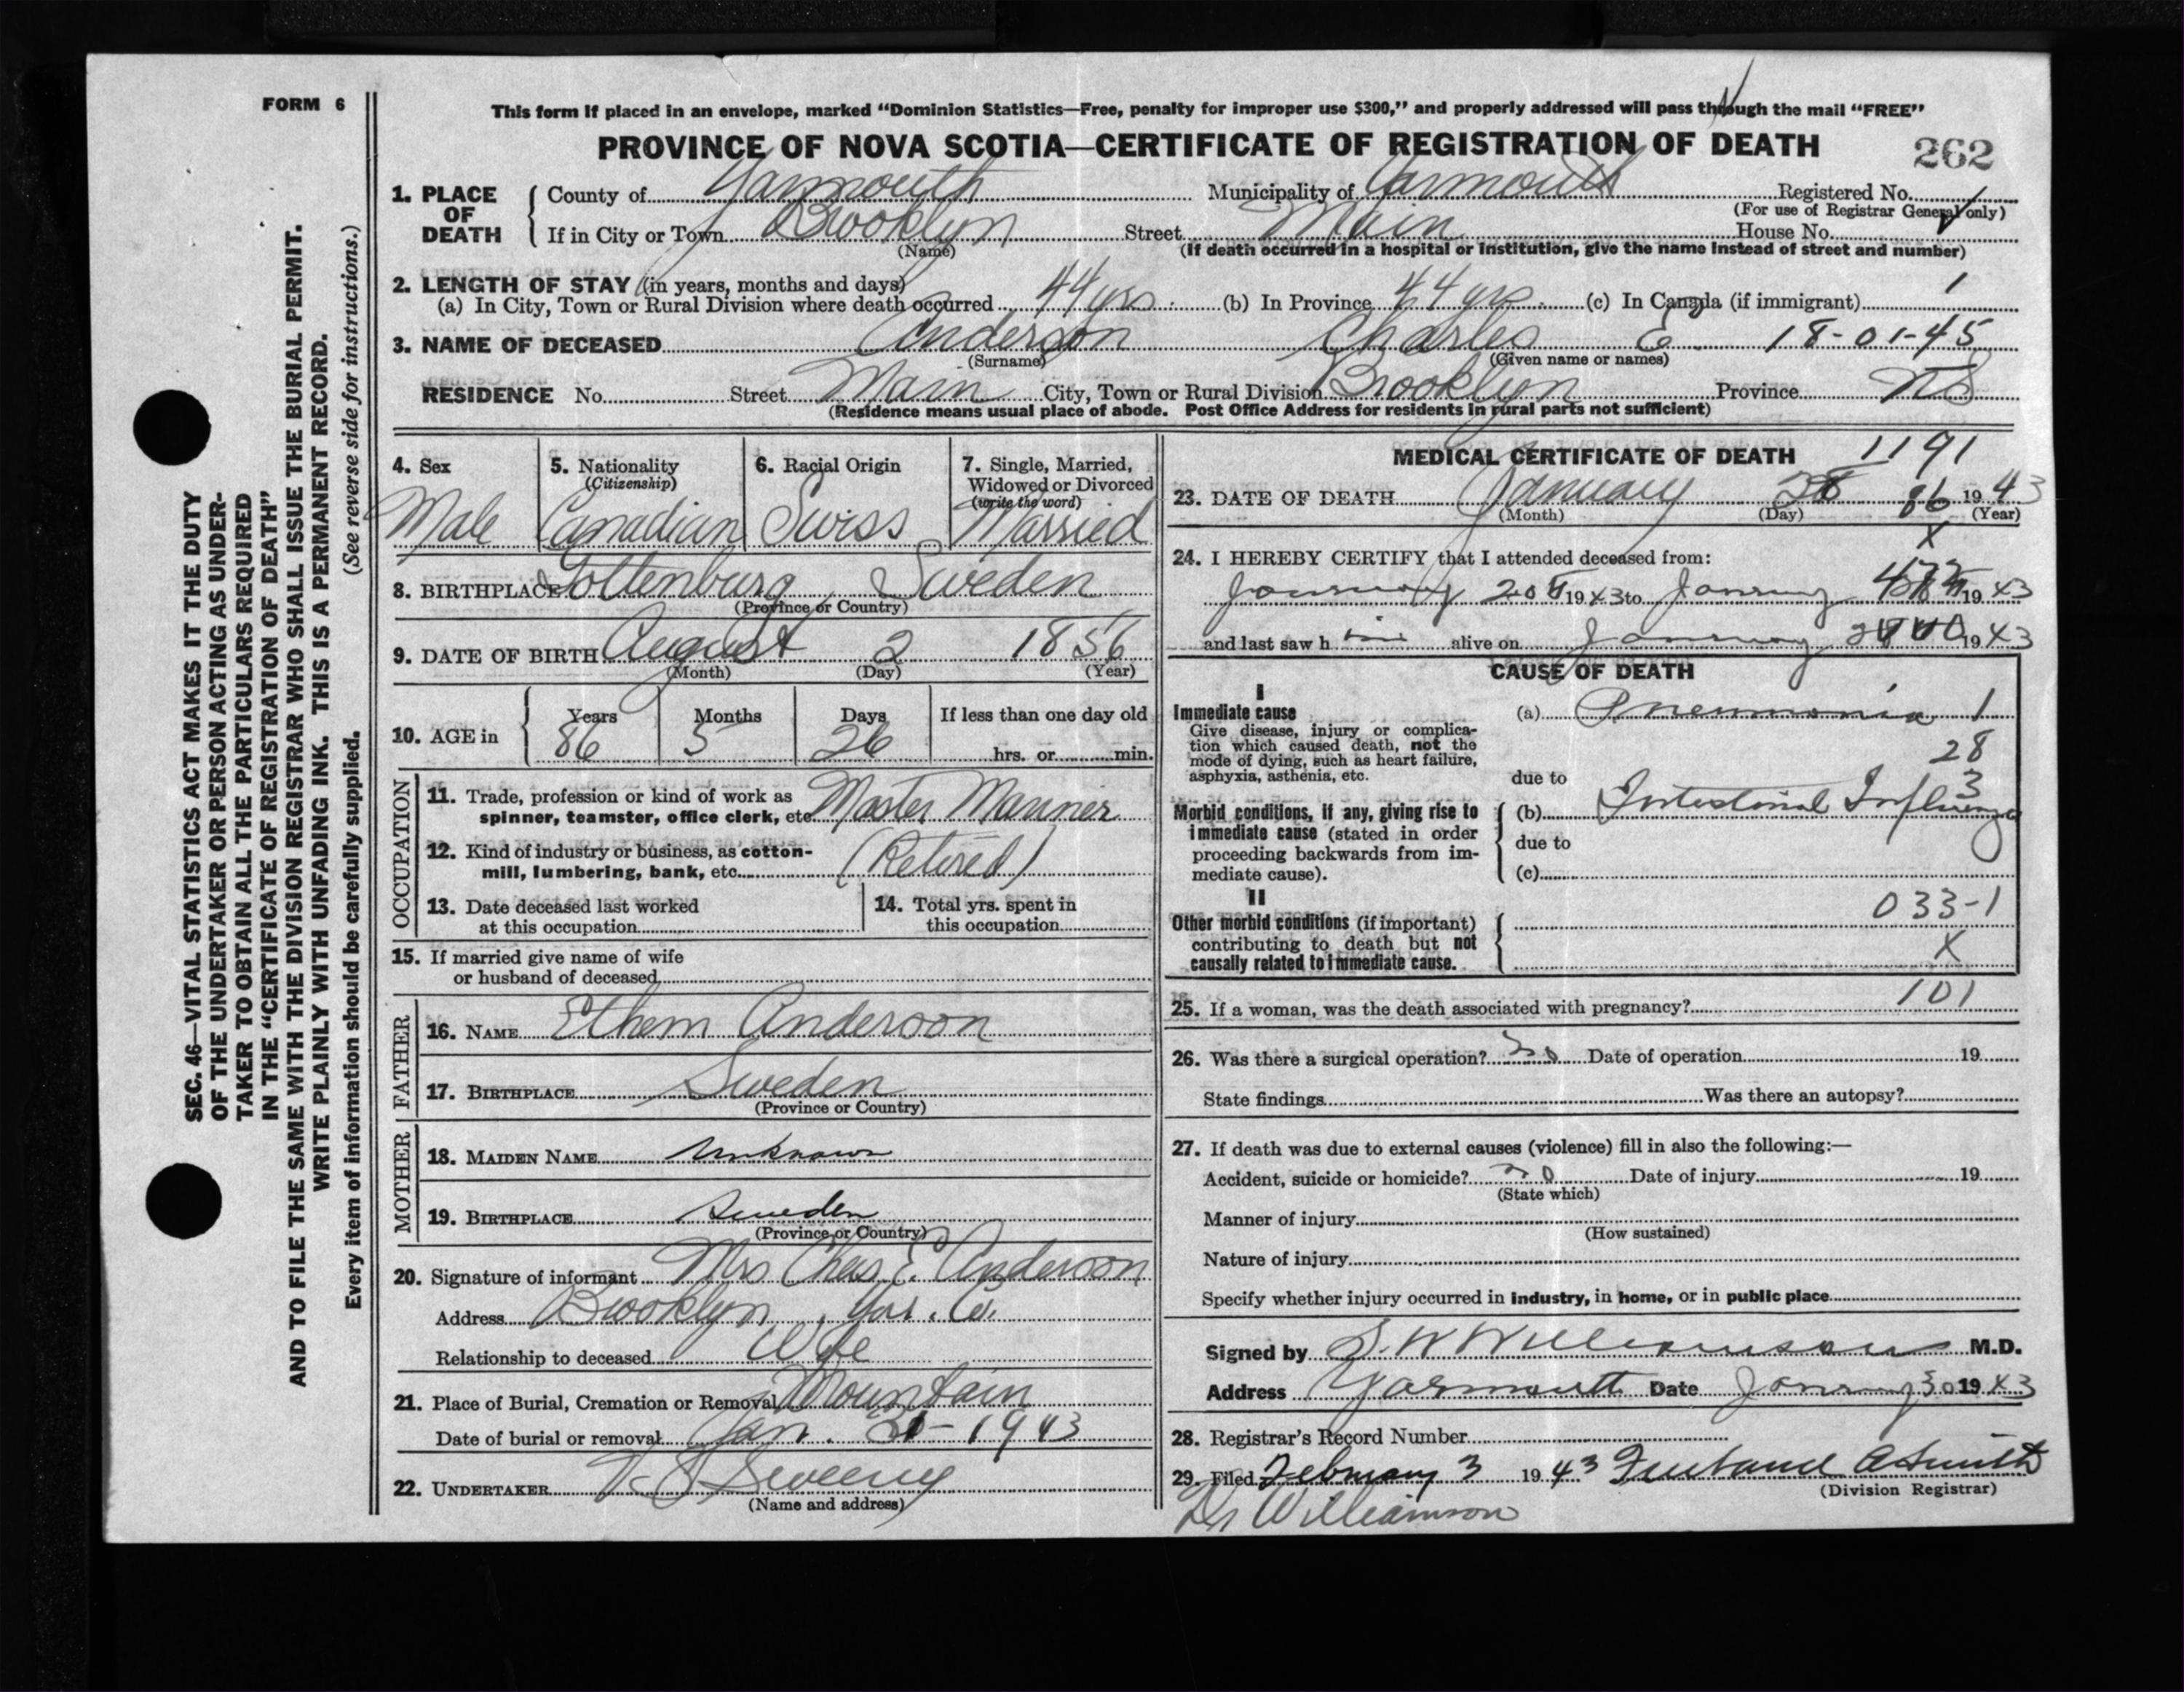 FORM 6
This form if placed in an envelope, marked “Dominion Statistics—Free, penalty for improper use $300,” and properly addressed will pass through the mail “FREE”
PROVINCE OF NOVA SCOTIA—CERTIFICATE OF REGISTRATION OF DEATH
262
1. PLACE OF DEATH County of Yarmouth Municipality of Yarmouth Registered No.
(For use of Registrar General only)
If in City or Town Brooklyn Street Main House No.
(Name) (If death occurred in a hospital or institution, give the name instead of street and number)
2. LENGTH OF STAY (in years, months and days)
(a) In City, Town or Rural Division where death occurred 44 yrs. (b) In Province 44 yrs. (c) In Canada (if immigrant) 1
3. NAME OF DECEASED Anderson Charles E 18-01-45
(Surname) (Given name or names)
RESIDENCE No. Street Main City, Town or Rural Division Brooklyn Province NS
(Residence means usual place of abode. Post Office Address for residents in rural parts not sufficient)
4. Sex
Male
5. Nationality
(Citizenship)
Canadian
6. Racial Origin
Swiss
7. Single, Married,
Widowed or Divorced
(write the word)
Married
8. BIRTHPLACE Gottenburg, Sweden
(Province or Country)
9. DATE OF BIRTH August 2 1856
(Month) (Day) (Year)
10. AGE in Years Months Days If less than one day old
86 5 26 hrs. or min.
OCCUPATION
11. Trade, profession or kind of work as
spinner, teamster, office clerk, etc. Master Mariner
12. Kind of industry or business, as cotton-
mill, lumbering, bank, etc. (Retired)
13. Date deceased last worked
at this occupation
14. Total yrs. spent in
this occupation
15. If married give name of wife
or husband of deceased
FATHER
16. NAME Ethem Anderson
17. BIRTHPLACE Sweden
(Province or Country)
MOTHER
18. MAIDEN NAME Unknown
19. BIRTHPLACE Sweden
(Province or Country)
20. Signature of informant Mrs Chas. E. Anderson
Address Brooklyn, Yar. Co.
Relationship to deceased Wife
21. Place of Burial, Cremation or Removal Mountain
Date of burial or removal Jan. 1943
22. UNDERTAKER V S Sweeny
(Name and address)
MEDICAL CERTIFICATE OF DEATH 1191
23. DATE OF DEATH January 28 1943
(Month) (Day) 86 (Year)
X
24. I HEREBY CERTIFY that I attended deceased from:
January 20 1943 to January 1943
and last saw him alive on January 1943
CAUSE OF DEATH
I
Immediate cause
Give disease, injury or complica-
tion which caused death, not the
mode of dying, such as heart failure,
asphyxia, asthenia, etc.
(a) Pneumonia 1
28
due to 3
Morbid conditions, if any, giving rise to
immediate cause (stated in order
proceeding backwards from im-
mediate cause).
(b) Intestinal Influenza
due to
(c)
II
Other morbid conditions (if important)
contributing to death but not
causally related to immediate cause.
033-1
X
25. If a woman, was the death associated with pregnancy? 101
26. Was there a surgical operation? No Date of operation 19
State findings Was there an autopsy?
27. If death was due to external causes (violence) fill in also the following:—
Accident, suicide or homicide? no Date of injury 19
(State which)
Manner of injury
(How sustained)
Nature of injury
Specify whether injury occurred in industry, in home, or in public place
Signed by S. W Williamson M.D.
Address Yarmouth Date January 30 1943
28. Registrar's Record Number
29. Filed February 3 1943 A Smith
(Division Registrar)
Dr Williamson
SEC. 46—VITAL STATISTICS ACT MAKES IT THE DUTY
OF THE UNDERTAKER OR PERSON ACTING AS UNDER-
TAKER TO OBTAIN ALL THE PARTICULARS REQUIRED
IN THE “CERTIFICATE OF REGISTRATION OF DEATH”
AND TO FILE THE SAME WITH THE DIVISION REGISTRAR WHO SHALL ISSUE THE BURIAL PERMIT.
WRITE PLAINLY WITH UNFADING INK. THIS IS A PERMANENT RECORD.
Every item of information should be carefully supplied. (See reverse side for instructions.)